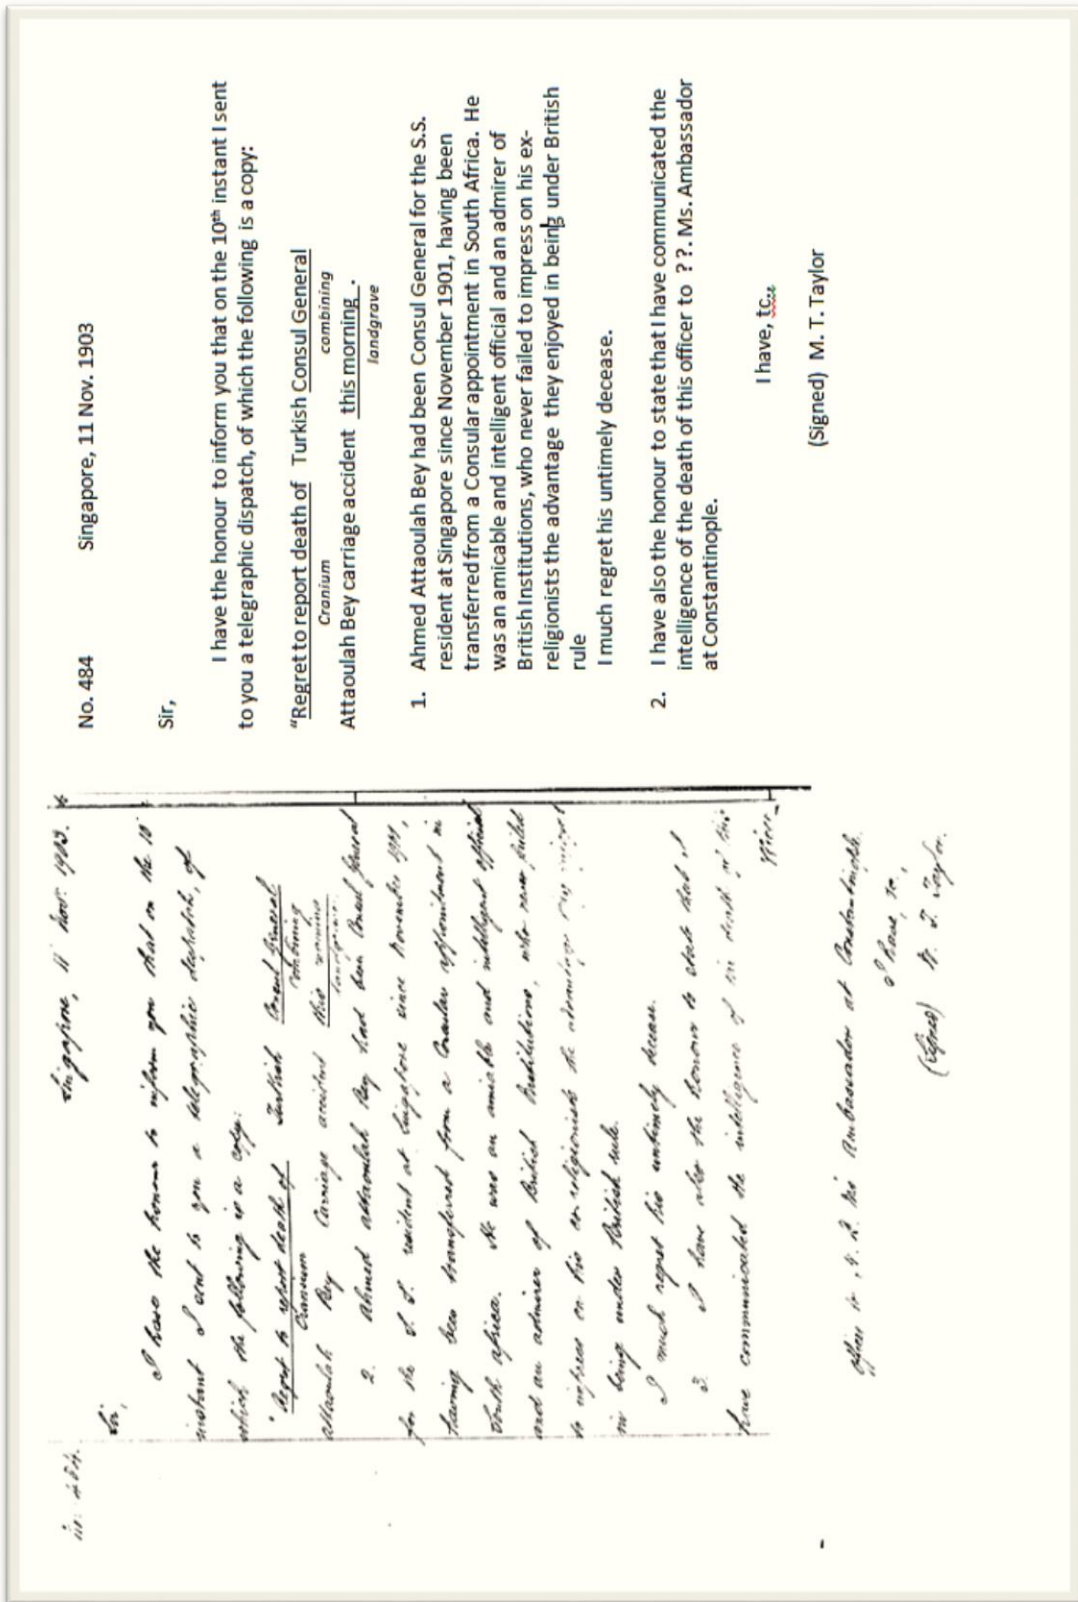 No. 484. Singapore, 11 Nov. 1903.
Sir,
I have the honour to inform you that on the 10
instant I sent to you a telegraphic despatch, of
which the following is a copy:
"Regret to report death of Turkish Consul General
Cranium combining
Attaoulah Bey Carriage accident this morning
landgrave
2. Ahmed Attaoulah Bey had been Consul General
for the S.S. resident at Singapore since November 1901,
having been transferred from a Consular appointment in
South Africa. He was an amicable and intelligent official
and an admirer of British Institutions, who never failed
to impress on his co-religionists the advantage they enjoyed
in being under British rule.
I much regret his untimely decease.
3. I have also the honour to state that I
have communicated the intelligence of the death of this
officer to Ambassador at Constantinople.
I have, &c,
(Signed) W. T. Taylor.
No. 484 Singapore, 11 Nov. 1903
Sir,
I have the honour to inform you that on the 10th instant I sent
to you a telegraphic dispatch, of which the following is a copy:
"Regret to report death of Turkish Consul General
Cranium combining
Attaoulah Bey carriage accident this morning.
landgrave
1. Ahmed Attaoulah Bey had been Consul General for the S.S.
resident at Singapore since November 1901, having been
transferred from a Consular appointment in South Africa. He
was an amicable and intelligent official and an admirer of
British Institutions, who never failed to impress on his ex-
religionists the advantage they enjoyed in being under British
rule
I much regret his untimely decease.
2. I have also the honour to state that I have communicated the
intelligence of the death of this officer to ? ?. Ms. Ambassador
at Constantinople.
I have, tc..,
(Signed) M. T. Taylor